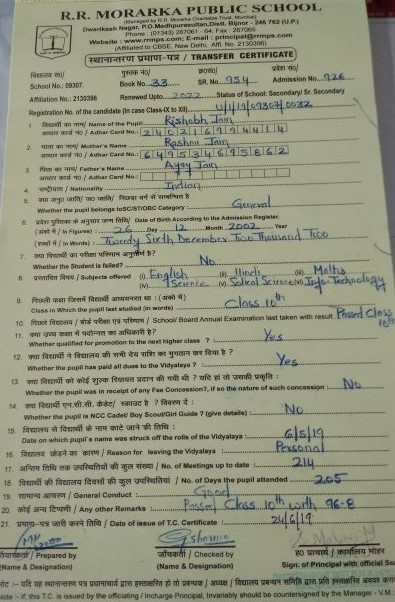 R.R. MORARKA PUBLIC SCHOOL
(Managed by R.R. Morarka Charitable Trust, Mumbai)
Dwarikesh Nagar, P.O.Medhpurasultan, Distt. Bijnor - 246 762 (U.P.)
Phone : (01343) 267061 - 64, Fax : 267065
Website : www.rrmps.com; E-mail : principal@rrmps.com
(Affiliated to CBSE, New Delhi, Affi. No. 2130396)
स्थानान्तरण प्रमाण-पत्र / TRANSFER CERTIFICATE
विद्यालय सं०/ पुस्तक नं०/ क्र०सं०/ प्रवेश सं०/
School No.: 09307. Book No. 33 SR. No. 954 Admission No. 926
Affiliation No.: 2130396 Renewed Upto 2022 Status of School: Secondary/ Sr. Secondary
Registration No. of the candidate (In case Class-IX to XII)
1. विद्यार्थी का नाम/ Name of the Pupil: Rishabh Jain
आधार कार्ड नं० / Adhar Card No.:
2. माता का नाम/ Mother's Name : Rashmi Jain
आधार कार्ड नं० / Adhar Card No.: 649534695862
3. पिता का नाम / Father's Name : Ajay Jain
आधार कार्ड नं० / Adhar Card No.:
4. राष्ट्रीयता / Nationality : Indian
5. क्या अनु० जाति/ ज० जाति/ पिछड़ा वर्ग से सम्बन्धित है
Whether the pupil belongs to SC/ST/OBC Category : General
6. प्रवेश पुस्तिका के अनुसार जन्म तिथि/ Date of Birth According to the Admission Register.
(अंकों में / In Figures) : 26 Day 12 Month 2002 Year
(शब्दों में / In Words) : Twenty Sixth December Two Thousand Two
7. क्या विद्यार्थी का परीक्षा परिणाम अनुत्तीर्ण है?
Whether the Student is failed? : No
8. प्रस्तावित विषय / Subjects offered (i). English (ii). Hindi (iii). Maths
(iv) Science (v) Social Science (vi) Info-Technology
9. पिछली कक्षा जिसमें विद्यार्थी अध्ययनरत था : (अंकों में)
Class in Which the pupil last studied (in words) : Class 10th
10. पिछले विद्यालय / बोर्ड परीक्षा एवं परिणाम / School/ Board Annual Examination last taken with result Passed Class 10th
11. क्या उच्च कक्षा में पदोन्नत का अधिकारी है?
Whether qualified for promotion to the next higher class ? : Yes
12. क्या विद्यार्थी ने विद्यालय की सभी देय राशि का भुगतान कर दिया है ?
Whether the pupil has paid all dues to the Vidyalaya ? : Yes
13. क्या विद्यार्थी को कोई शुल्क रियायत प्रदान की गयी थी ? यदि हां तो उसकी प्रकृति :
Whether the pupil was in receipt of any Fee Concession?, if so the nature of such concession : No
14. क्या विद्यार्थी एन.सी.सी. कैडेट/ स्काउट है ? विवरण दें :
Whether the pupil is NCC Cadet/ Boy Scout/Girl Guide ? (give details) : No
15. विद्यालय से विद्यार्थी के नाम काटे जाने की तिथि :
Date on which pupil's name was struck off the rolls of the Vidyalaya : 6/5/19
16. विद्यालय छोड़ने का कारण / Reason for leaving the Vidyalaya : Personal
17. अन्तिम तिथि तक उपस्थितियों की कुल संख्या / No. of Meetings up to date : 214
18. विद्यार्थी की विद्यालय दिवसों की कुल उपस्थितियां / No. of Days the pupil attended 205
19. सामान्य आचरण / General Conduct : Good
20. कोई अन्य टिप्पणी / Any other Remarks : Passed Class 10th with 96.8
21. प्रमाण-पत्र जारी करने तिथि / Date of issue of T.C. Certificate : 24/6/19
/ Prepared by जाँचकर्ता / Checked by ह० प्राचार्य / कार्यालय मोहर
(Name & Designation) (Name & Designation) Sign. of Principal with official Seal
नोट :- यदि यह स्थानान्तरण पत्र प्रधानाचार्य द्वारा हस्ताक्षरित हो तो प्रबन्धक / अध्यक्ष / विद्यालय प्रबन्धन समिति द्वारा प्रति हस्ताक्षरित
Note :- If, this T.C. is issued by the officiating / Incharge Principal, Invariably should be countersigned by the Manager - V.M.